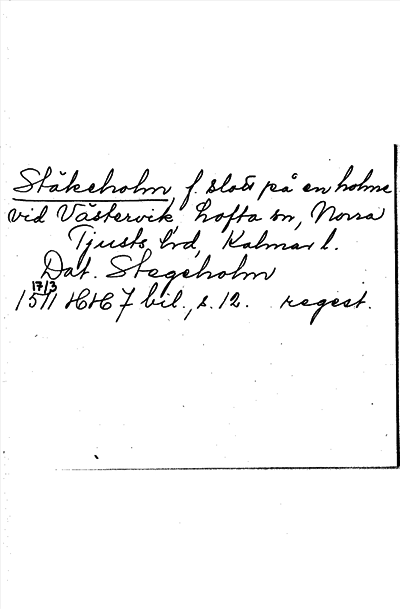 Stäkeholm f. slott på en holme
vid Västervik Lofta sn, Norra
Tjusts hrd, Kalmar l.
Dat. Stegeholm
17/3
1511 HH 7 bil., s. 12. regest.